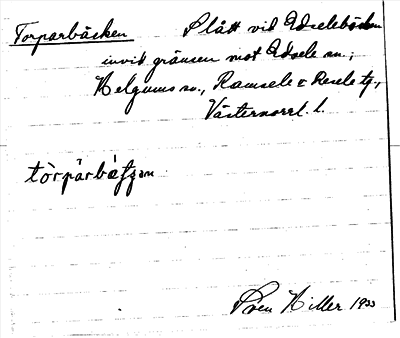 Torparbäcken Slått vid Edselebäcken
invid gränsen mot Edsele sn.;
Helgums sn., Ramsele & Resele tg.,
Västernorrl. l.
tòrpärbàtʃən
Sven Hiller 1933